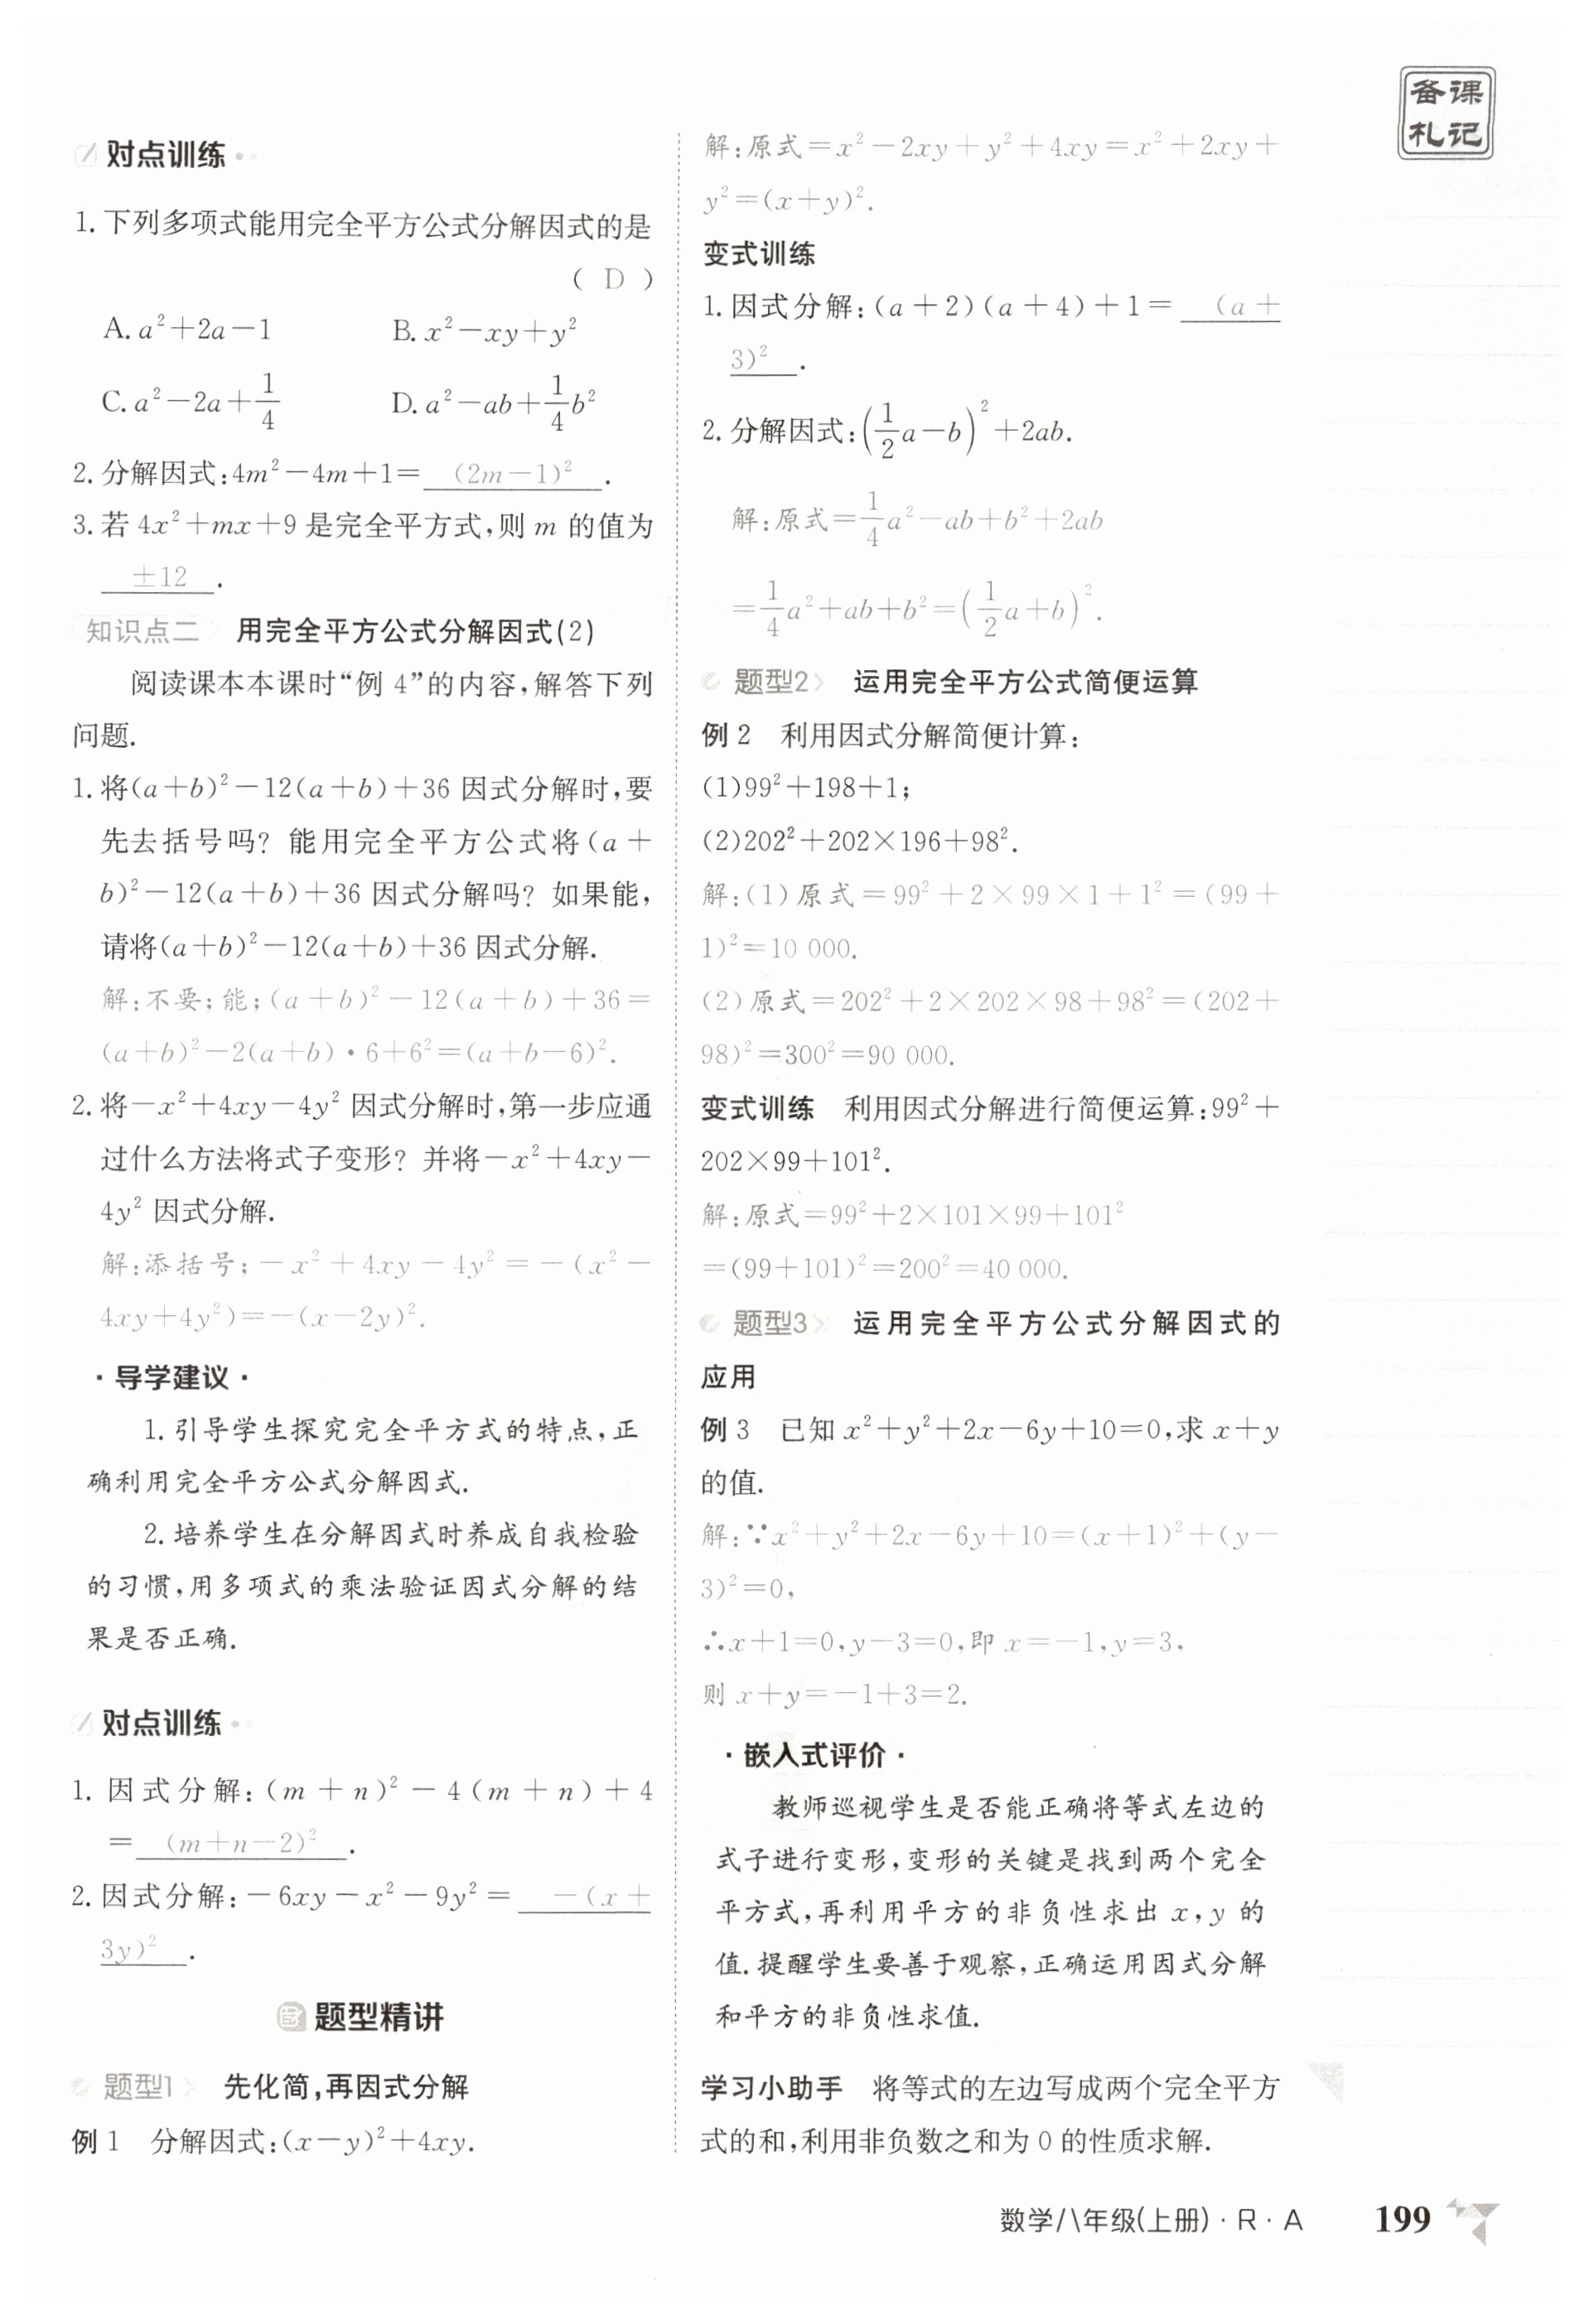 备课
札记
对点训练
1. 下列多项式能用完全平方公式分解因式的是
( D )
A. a²+2a-1 B. x²-xy+y²
C. a²-2a+1/4 D. a²-ab+1/4b²
2. 分解因式:4m²-4m+1=(2m-1)².
3. 若 4x²+mx+9 是完全平方式,则 m 的值为
±12.
知识点二 用完全平方公式分解因式(2)
阅读课本本课时“例 4”的内容,解答下列
问题.
1. 将(a+b)²-12(a+b)+36 因式分解时,要
先去括号吗? 能用完全平方公式将(a+
b)²-12(a+b)+36 因式分解吗? 如果能,
请将(a+b)²-12(a+b)+36 因式分解.
解:不要;能;(a+b)²-12(a+b)+36=
(a+b)²-2(a+b)·6+6²=(a+b-6)².
2. 将-x²+4xy-4y² 因式分解时,第一步应通
过什么方法将式子变形? 并将-x²+4xy-
4y² 因式分解.
解:添括号;-x²+4xy-4y²=-(x²-
4xy+4y²)=-(x-2y)².
·导学建议·
1. 引导学生探究完全平方式的特点,正
确利用完全平方公式分解因式.
2. 培养学生在分解因式时养成自我检验
的习惯,用多项式的乘法验证因式分解的结
果是否正确.
对点训练
1. 因式分解:(m+n)²-4(m+n)+4
=(m+n-2)².
2. 因式分解:-6xy-x²-9y²=-(x+
3y)².
题型精讲
题型1 先化简,再因式分解
例 1 分解因式:(x-y)²+4xy.
解:原式=x²-2xy+y²+4xy=x²+2xy+
y²=(x+y)².
变式训练
1. 因式分解:(a+2)(a+4)+1=(a+
3)².
2. 分解因式:(1/2a-b)²+2ab.
解:原式=1/4a²-ab+b²+2ab
=1/4a²+ab+b²=(1/2a+b)².
题型2 运用完全平方公式简便运算
例 2 利用因式分解简便计算:
(1)99²+198+1;
(2)202²+202×196+98².
解:(1)原式=99²+2×99×1+1²=(99+
1)²=10 000.
(2)原式=202²+2×202×98+98²=(202+
98)²=300²=90 000.
变式训练 利用因式分解进行简便运算:99²+
202×99+101².
解:原式=99²+2×101×99+101²
=(99+101)²=200²=40 000.
题型3 运用完全平方公式分解因式的
应用
例 3 已知 x²+y²+2x-6y+10=0,求 x+y
的值.
解:∵x²+y²+2x-6y+10=(x+1)²+(y-
3)²=0,
∴x+1=0,y-3=0,即 x=-1,y=3,
则 x+y=-1+3=2.
·嵌入式评价·
教师巡视学生是否能正确将等式左边的
式子进行变形,变形的关键是找到两个完全
平方式,再利用平方的非负性求出 x,y 的
值. 提醒学生要善于观察,正确运用因式分解
和平方的非负性求值.
学习小助手 将等式的左边写成两个完全平方
式的和,利用非负数之和为 0 的性质求解.
数学/八年级(上册)·R·A 199